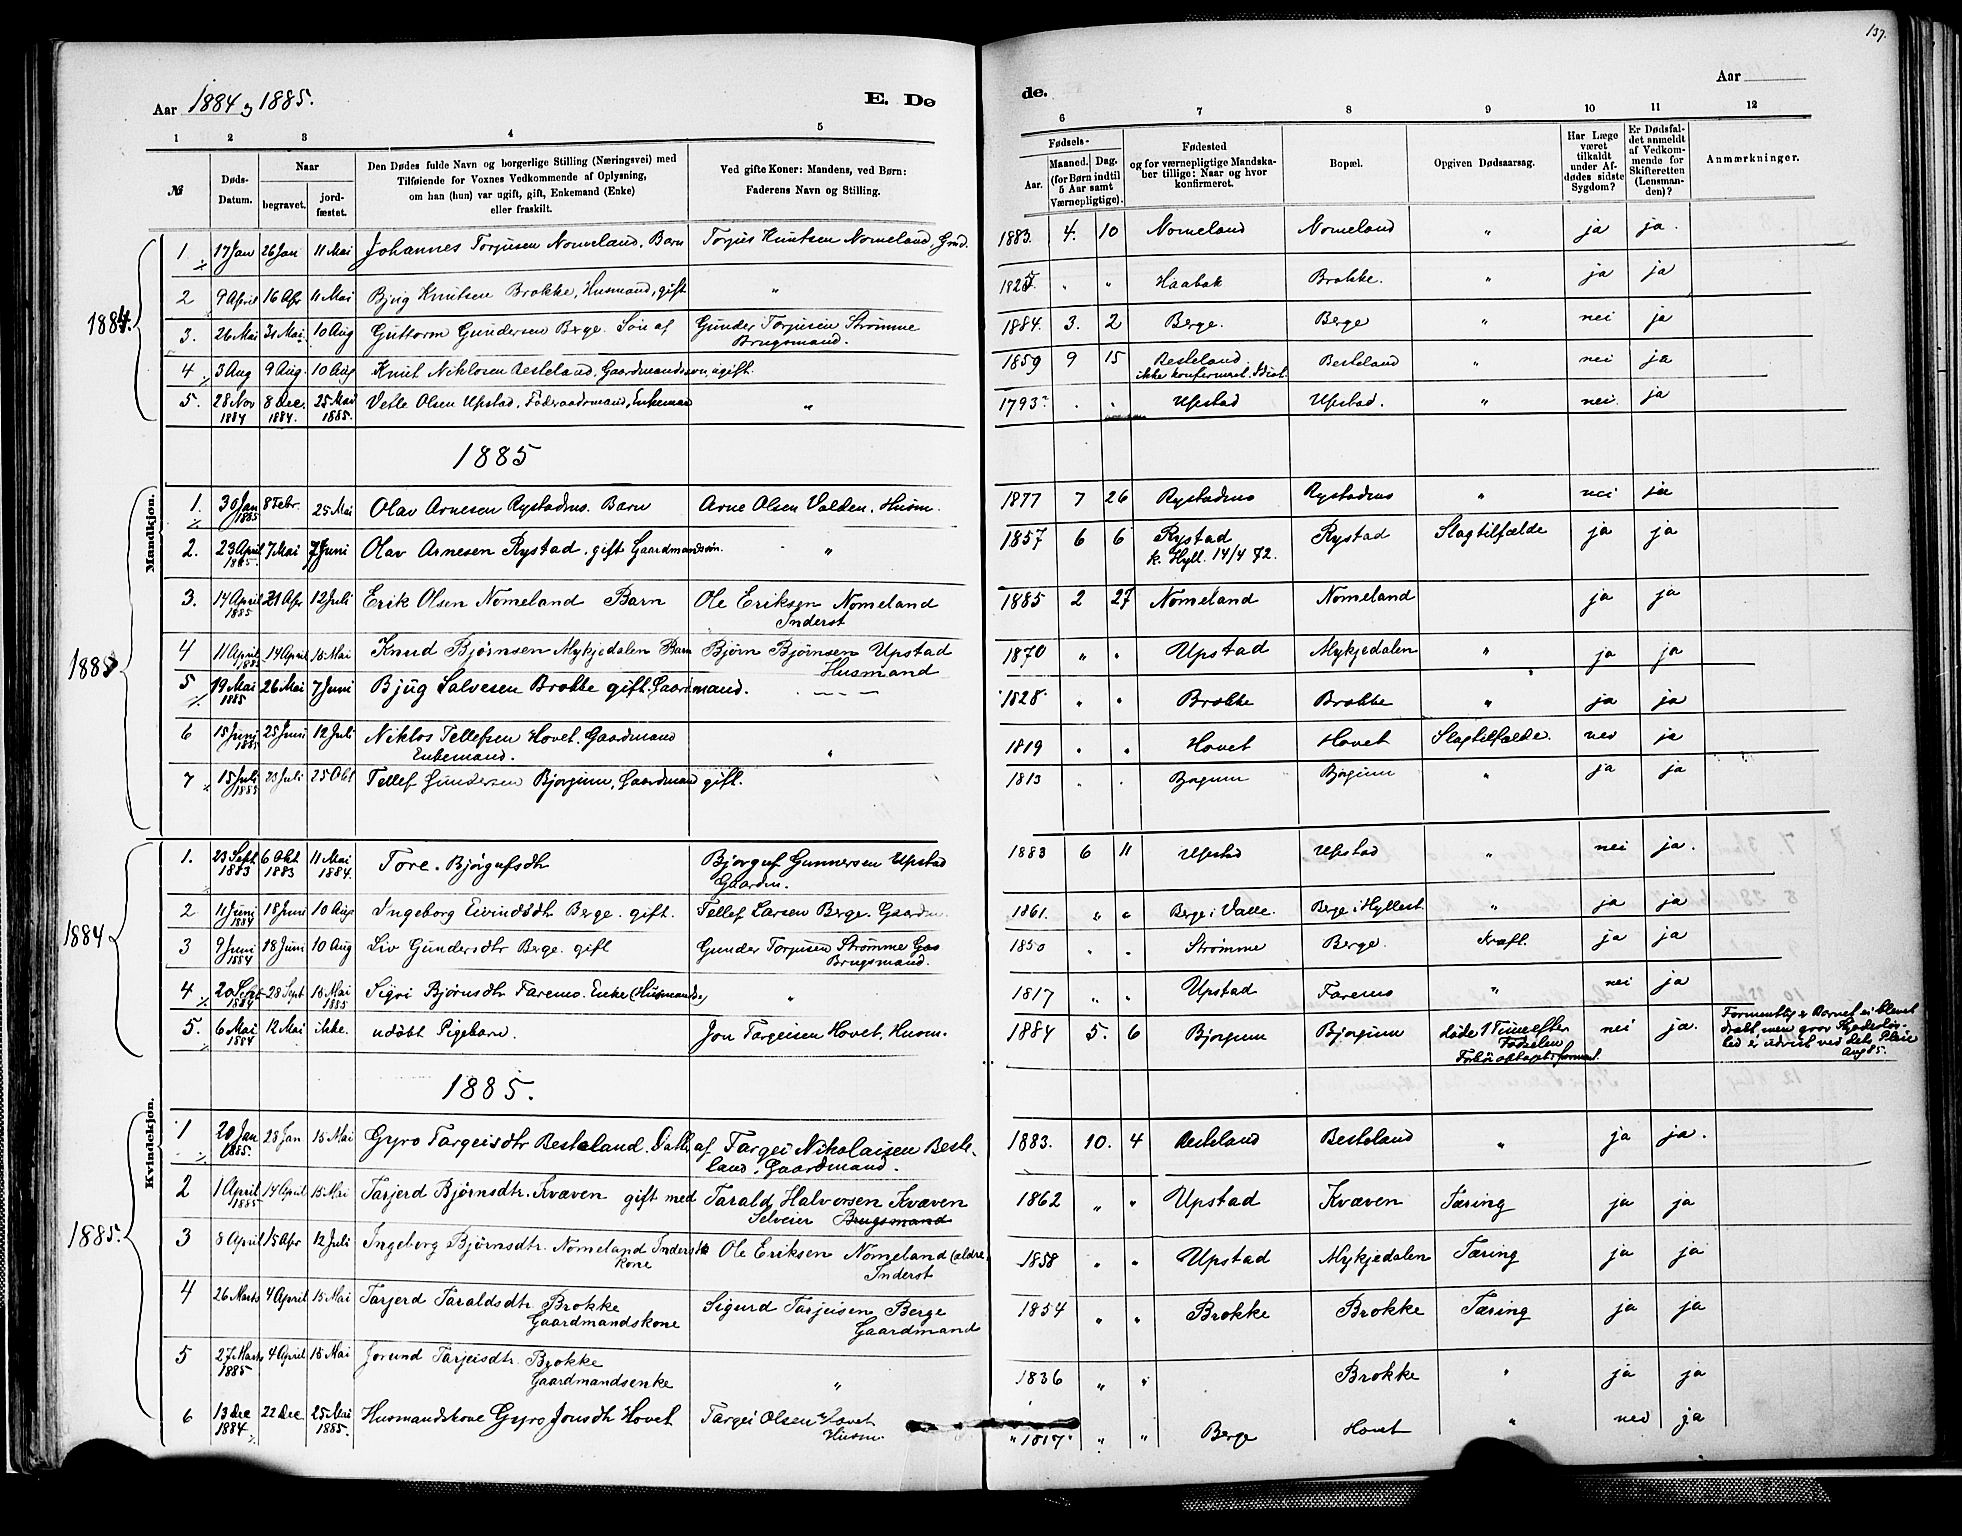 137.
Aar 1884 og 1885. E. Dø
de. Aar
1 2 3 4 5
6 7 8 9 10 11 12
№ Døds-Datum. Naar begravet. jord-fæstet. Den Dødes fulde Navn og borgerlige Stilling (Næringsvei) med Tilføiende for Voxnes Vedkommende af Oplysning, om han (hun) var ugift, gift, Enkemand (Enke) eller fraskilt. Ved gifte Koner: Mandens, ved Børn: Faderens Navn og Stilling.
Fødsels- Aar. Maaned. Dag. (for Børn indtil 5 Aar samt Værnepligtige). Fødested og for værnepligtige Mandskaber tillige: Naar og hvor konfirmeret. Bopæl. Opgiven Dødsaarsag. Har Læge været tilkaldt under Afdødes sidste Sygdom? Er Dødsfaldet anmeldt af Vedkommende for Skifteretten (Lensmanden)? Anmærkninger.
Mandkjøn.
1884.
1 17 Jan 26 Jan 11 Mai Johannes Torjusen Nomeland, Barn Torjus Knutsen Nomeland, Grd. 1883. 4. 10 Nomeland Nomeland " ja ja.
2 9 April 16 Apr 11 Mai Bjug Knutsen Brokke, Husmand, gift " 1825. " " Haabak Brokke. " ja ja
3. 26 Mai 31 Mai 10 Aug Guttorm Gundersen Berge. Søn af Gunder Torjusen Strømme Brugsmand. 1884. 3. 2 Berge. Berge " nei ja
4 3 Aug 9 Aug. 10 Aug Knut Niklosen Besteland, Gaardmandssøn, ugift. 1859 9 15 Besteland ikke konfirmeret. Idiot. Besteland " nei ja
5. 28 Nov 1884 8 Dec. 1884. 25 Mai 1885. Vetle Olsen Upstad, Føderaadsmand, Enkemand " 1793 " " Upstad Upstad. " nei. ja
1885
1885
1. 30 Jan 1885 8 Febr. 25 Mai Olav Arnesen Rystadmo. Barn Arne Olsen Valden. Husm. 1877 7 26 Rystadmo Rystadmo " nei ja
2. 23 April 1885. 7 Mai 7 Juni Olav Arnesen Rystad, gift Gaardmandssøn. " 1857 6 6 Rystad k. Hyll. 14/4 72. Rystad Slagtilfælde ja ja
3. 14 April 1885 21 Apr 12 Juli Erik Olsen Nomeland Barn Ole Eriksen Nomeland Inderst 1885 2 27 Nomeland Nomeland ja ja
4 11 April 1885 14 April 15 Mai Knud Bjørnsen Mykjedalen Barn Bjørn Bjørnsen Upstad Husmand 1870 " " Upstad Mykjedalen " ja ja
5 19 Mai 1885 26 Mai 7 Juni Bjug Salvesen Brokke gift. Gaardmand. — — — 1828 " " Brokke Brokke " ja ja
6 15 Juni 1885 25 Juni 12 Juli Niklos Tellefsen Hovet. Gaardmand Enkemand. " 1819 " " Hovet Hovet Slagtilfælde. nei ja
7 15 Juli 1885 23 Juli 25 Okt Tellef Gundersen Bjorgum, Gaardmand gift. 1813 " . Bjorgum Bjorgum " ja ja
Kvindekjøn.
1884
1. 23 Sept 1883 6 Okt 1883 11 Mai 1884. Tore. Bjørgufsdtr Bjorguf Gunnersen Upstad Gaardm. 1883 6 11 Upstad Upstad " nei ja.
2 11 Juni 1884 18 Juni 10 Aug Ingeborg Eivindsdtr Berge. gift. Tellef Larsen Berge. Gaardm. 1861. " " Berge i Valle. Berge i Hyllest. " ja ja
3 9 Juni 1884 18 Juni 10 Aug Liv Gundersdtr Berge. gift Gunder Torjusen Strømme Brugsmand. 1850 " . Strømme Berge. Kræft. ja ja
4 20 Sept 1884 28 Sept 15 Mai 1885 Sigri Bjørnsdtr Faremo. Enke (Husmands) " 1817 " " Upstad Faremo " nei ja
5. 6 Mai 1884 12 Mai ikke. udøbt Pigebarn. Jon Targeisen Hovet, Husm. 1884 5. 6 Bjorgum Bjorgum døde 1 Time efter Fødselen nei ja.
1885.
1885.
1 20 Jan 1885. 28 Jan 15 Mai Gyro Targeisdtr Besteland. Datter af Targei Nikolaisen Besteland. Gaardmand. 1883. 10. 4 Besteland Besteland " ja ja.
2 1 April 1885 14 April 15 Mai Tarjerd Bjørnsdtr. Kvæven gift med Tarald Halvorsen Kvæven Selveier Brugsmand 1862 " " Upstad Kvæven Tæring ja ja
3 8 April 15 Apr 12 Juli Ingeborg Bjørnsdtr. Nomeland Inderst Kone Ole Eriksen Nomeland (ældre) Inderst 1858 " " Upstad Mykjedalen Tæring ja ja
4 26 Marts 4 April 15 Mai Tarjerd Taraldsdtr Brokke Gaardmandskone Sigurd Tarjeisen Berge Gaardmand 1854 " " Brokke Brokke Tæring ja ja
5 27 Marts 1885 4 April 15 Mai Jorund Tarjeisdtr. Brokke Gaardmandsenke " 1836 " " Brokke " ja ja
6 13 Dec 1884 22 Dec 25 Mai 1885. Husmandskone Gyro Jonsdtr Hovet Targei Olsen Hovet Husm. 1817 " " Berge Hovet " nei ja